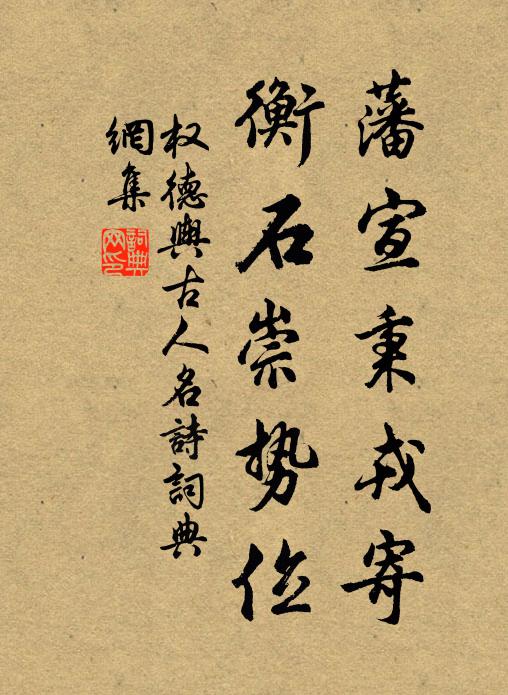 藩宣秉戎寄
衡石崇势位
权德舆古人名詩詞典
網集
詞典
网印